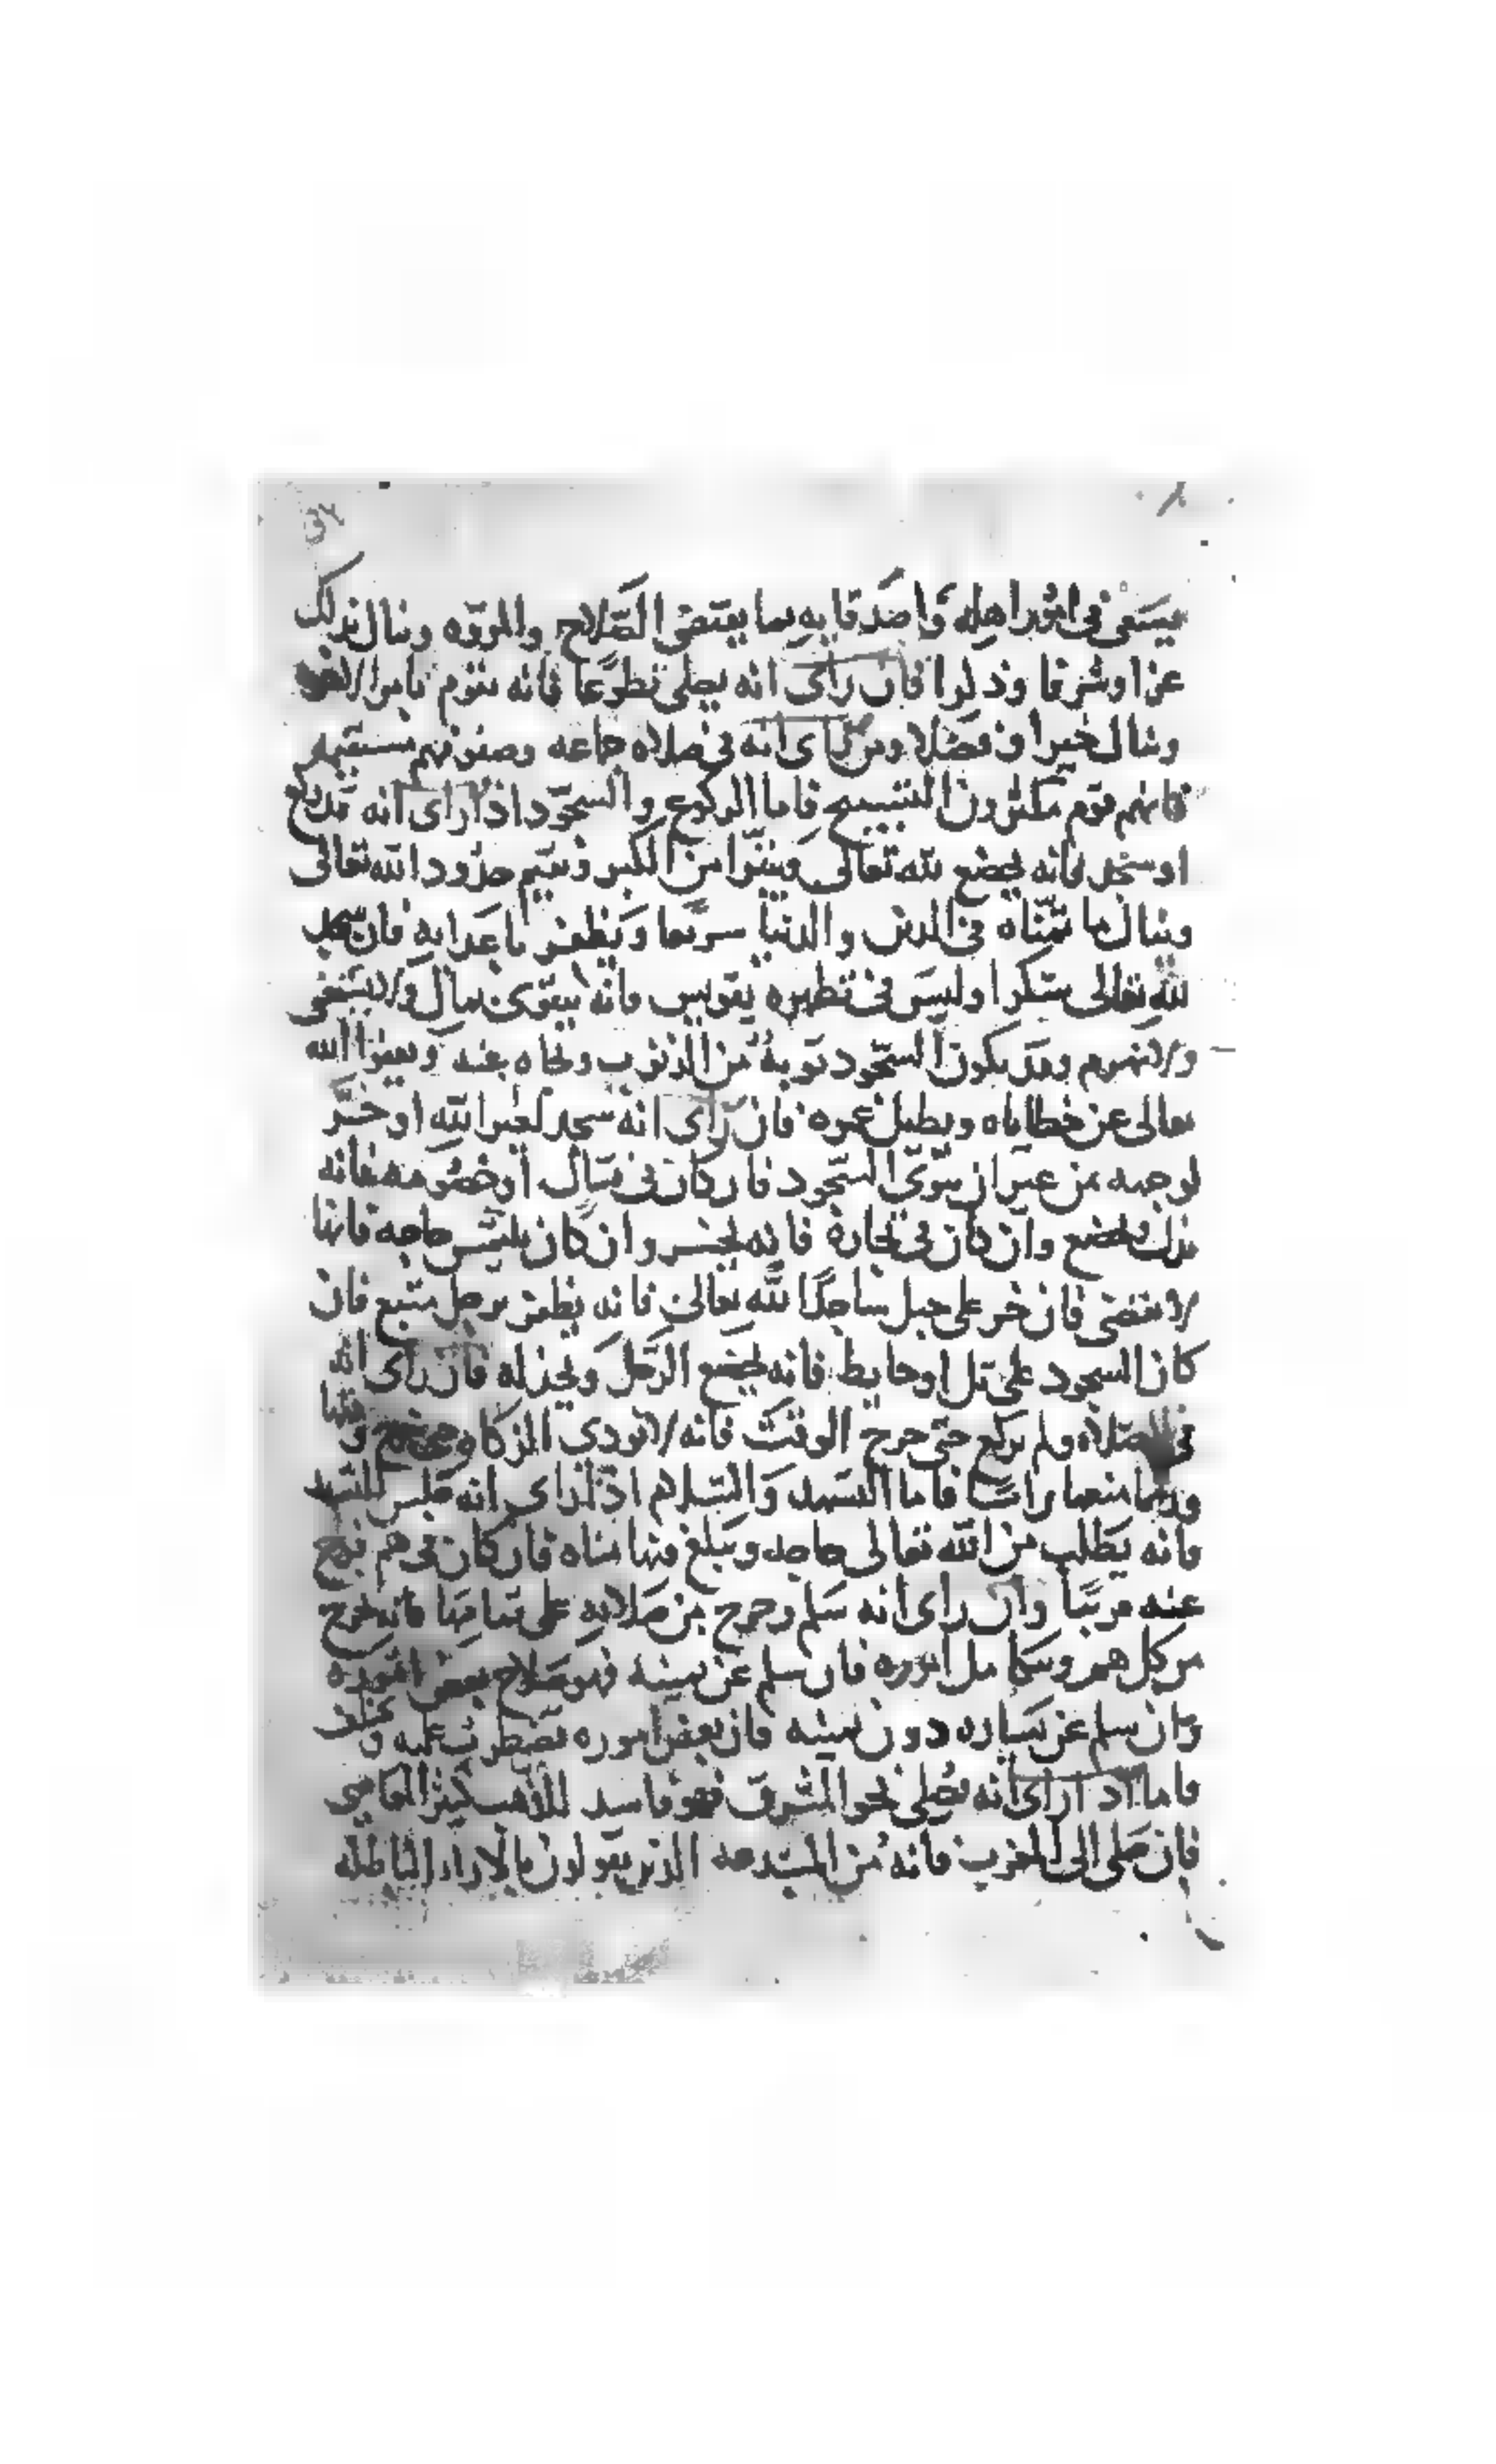 يسعى في امور اهله واصدقايه بما يقتضى الصلاح والمروه وينال بذلك
عزا وشرفا وذكرا فان راى انه يصلى تطوعا فانه يقوم بامر
وينال خيرا وفضلا ومن راى انه في صلاه جماعه وصفوفهم مستقيمه
فانهم قوم مكثرون التسبيح فاما الركوع والسجود اذا راى انه قد ركع
او سجد فانه يخضع لله تعالى ويتبرا من الكبر ويقيم حدود الله تعالى
وينال ما تمناه في الدين والدنيا سريعا ويظفر باعدايه فان سجد
لله تعالى شكرا وليس في ظهره تقويس فانه يتقوى بمال ولا يستغنى
ولا وقد يكون السجود توبة من الذنوب ونجاه بعنه ويعفوا الله
تعالى عن خطاياه ويطيل عمره فان راى انه سجد لغير الله او خر
لوجهه من غير ان ينوى السجود فان كان في قتال او خصومه فانه
يذل ويخضع وان كان في تجارة فانه يخسر وان كان يلتمس حاجه فانها
لا تقضى فان خر على جبل ساجدا لله تعالى فانه يظفر برجل منيع فان
كان السجود على تل او حايط فانه يخضع الرجل ويخذله فان راى انه
في الصلاه ولم يركع حتى خرج الوقت فانه لا يودي الزكاه حتى وقتها
وربما منعها راسا فاما التشهد والسلام اذا راى انه جلس للتشهد
فانه يطلب من الله تعالى حاجه ويبلغ منها مناه فان كان في هم فرج
عنه قريبا وان راى انه سلم وخرج من صلاته على تمامها فانه يخرج
من كل هم ويتكامل اموره فان سلم عن يمينه فهو صلاح بعض اموره
وان سلم عن يساره دون يمينه فان بعض اموره تضطرب عليه و
فاما اذا راى انه يصلى نحو المشرق فهو فاسد المذهب كثير المعاصي
فان صلى الى المغرب فانه من المبتدعه الذين يقولون بالاراء الباطله